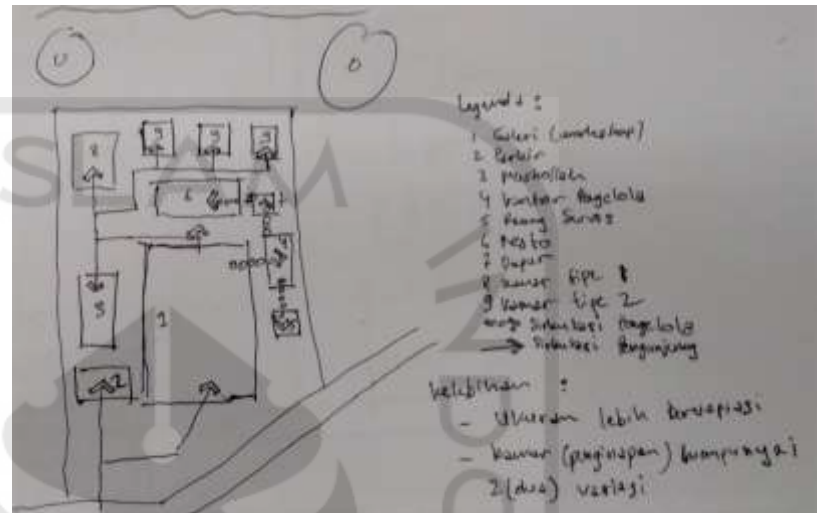 U
O
8
9
9
9
6
3
1
2
Legenda :
1 Galeri (workshop)
2 Parkir
3 Musholla
4 kantor Pagelola
5 Ruang Servis
6 Resto
7 Dapur
8 kamar tipe 1
9 kamar tipe 2
Sirkulasi Pagelola
Sirkulasi Pengunjung
kelebihan :
- Ukuran lebih bervariasi
- kamar (penginapan) mempunyai
2 (dua) variasi